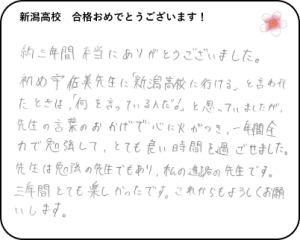 新潟高校　合格おめでとうございます！
約三年間本当にありがとうございました。
初め宇佐美先生に「新潟高校に行ける」と言われ
たときは、「何を言っている人だ。」と思っていましたが、
先生の言葉のおかげで心に火がつき、一年間全
力で勉強して、とても良い時間を過ごせました。
先生は勉強の先生でもあり、私の進路の先生です。
三年間とても楽しかったです。これからもよろしくお願
いします。